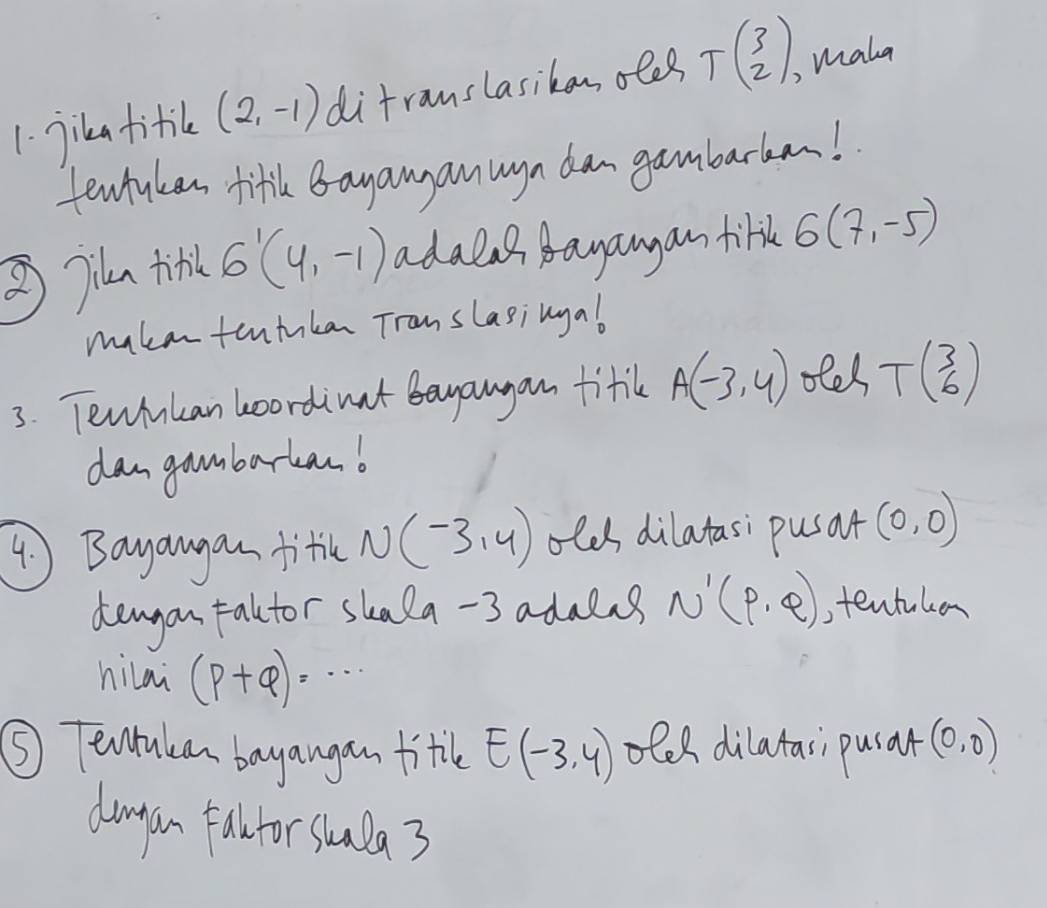 1. Jika titik (2, -1) ditranslasikan oleh T (3 2), maka
tentukan titik Bayangannya dan gambarkan!
2) Jika titik G'(4, -1) adalah bayangan titik G(7, -5)
makan tentukan Translasinya!
3. Tentukan koordinat Bayangan titik A(-3, 4) oleh T (3 6)
dan gambarkan!
4.) Bayangan titik N(-3, 4) oleh dilatasi pusat (0, 0)
dengan Faktor skala -3 adalah N'(P, Q), tentukan
nilai (P+Q) = ...
5) Tentukan bayangan titik E(-3, 4) oleh dilatasi pusat (0, 0)
dengan Faktor skala 3